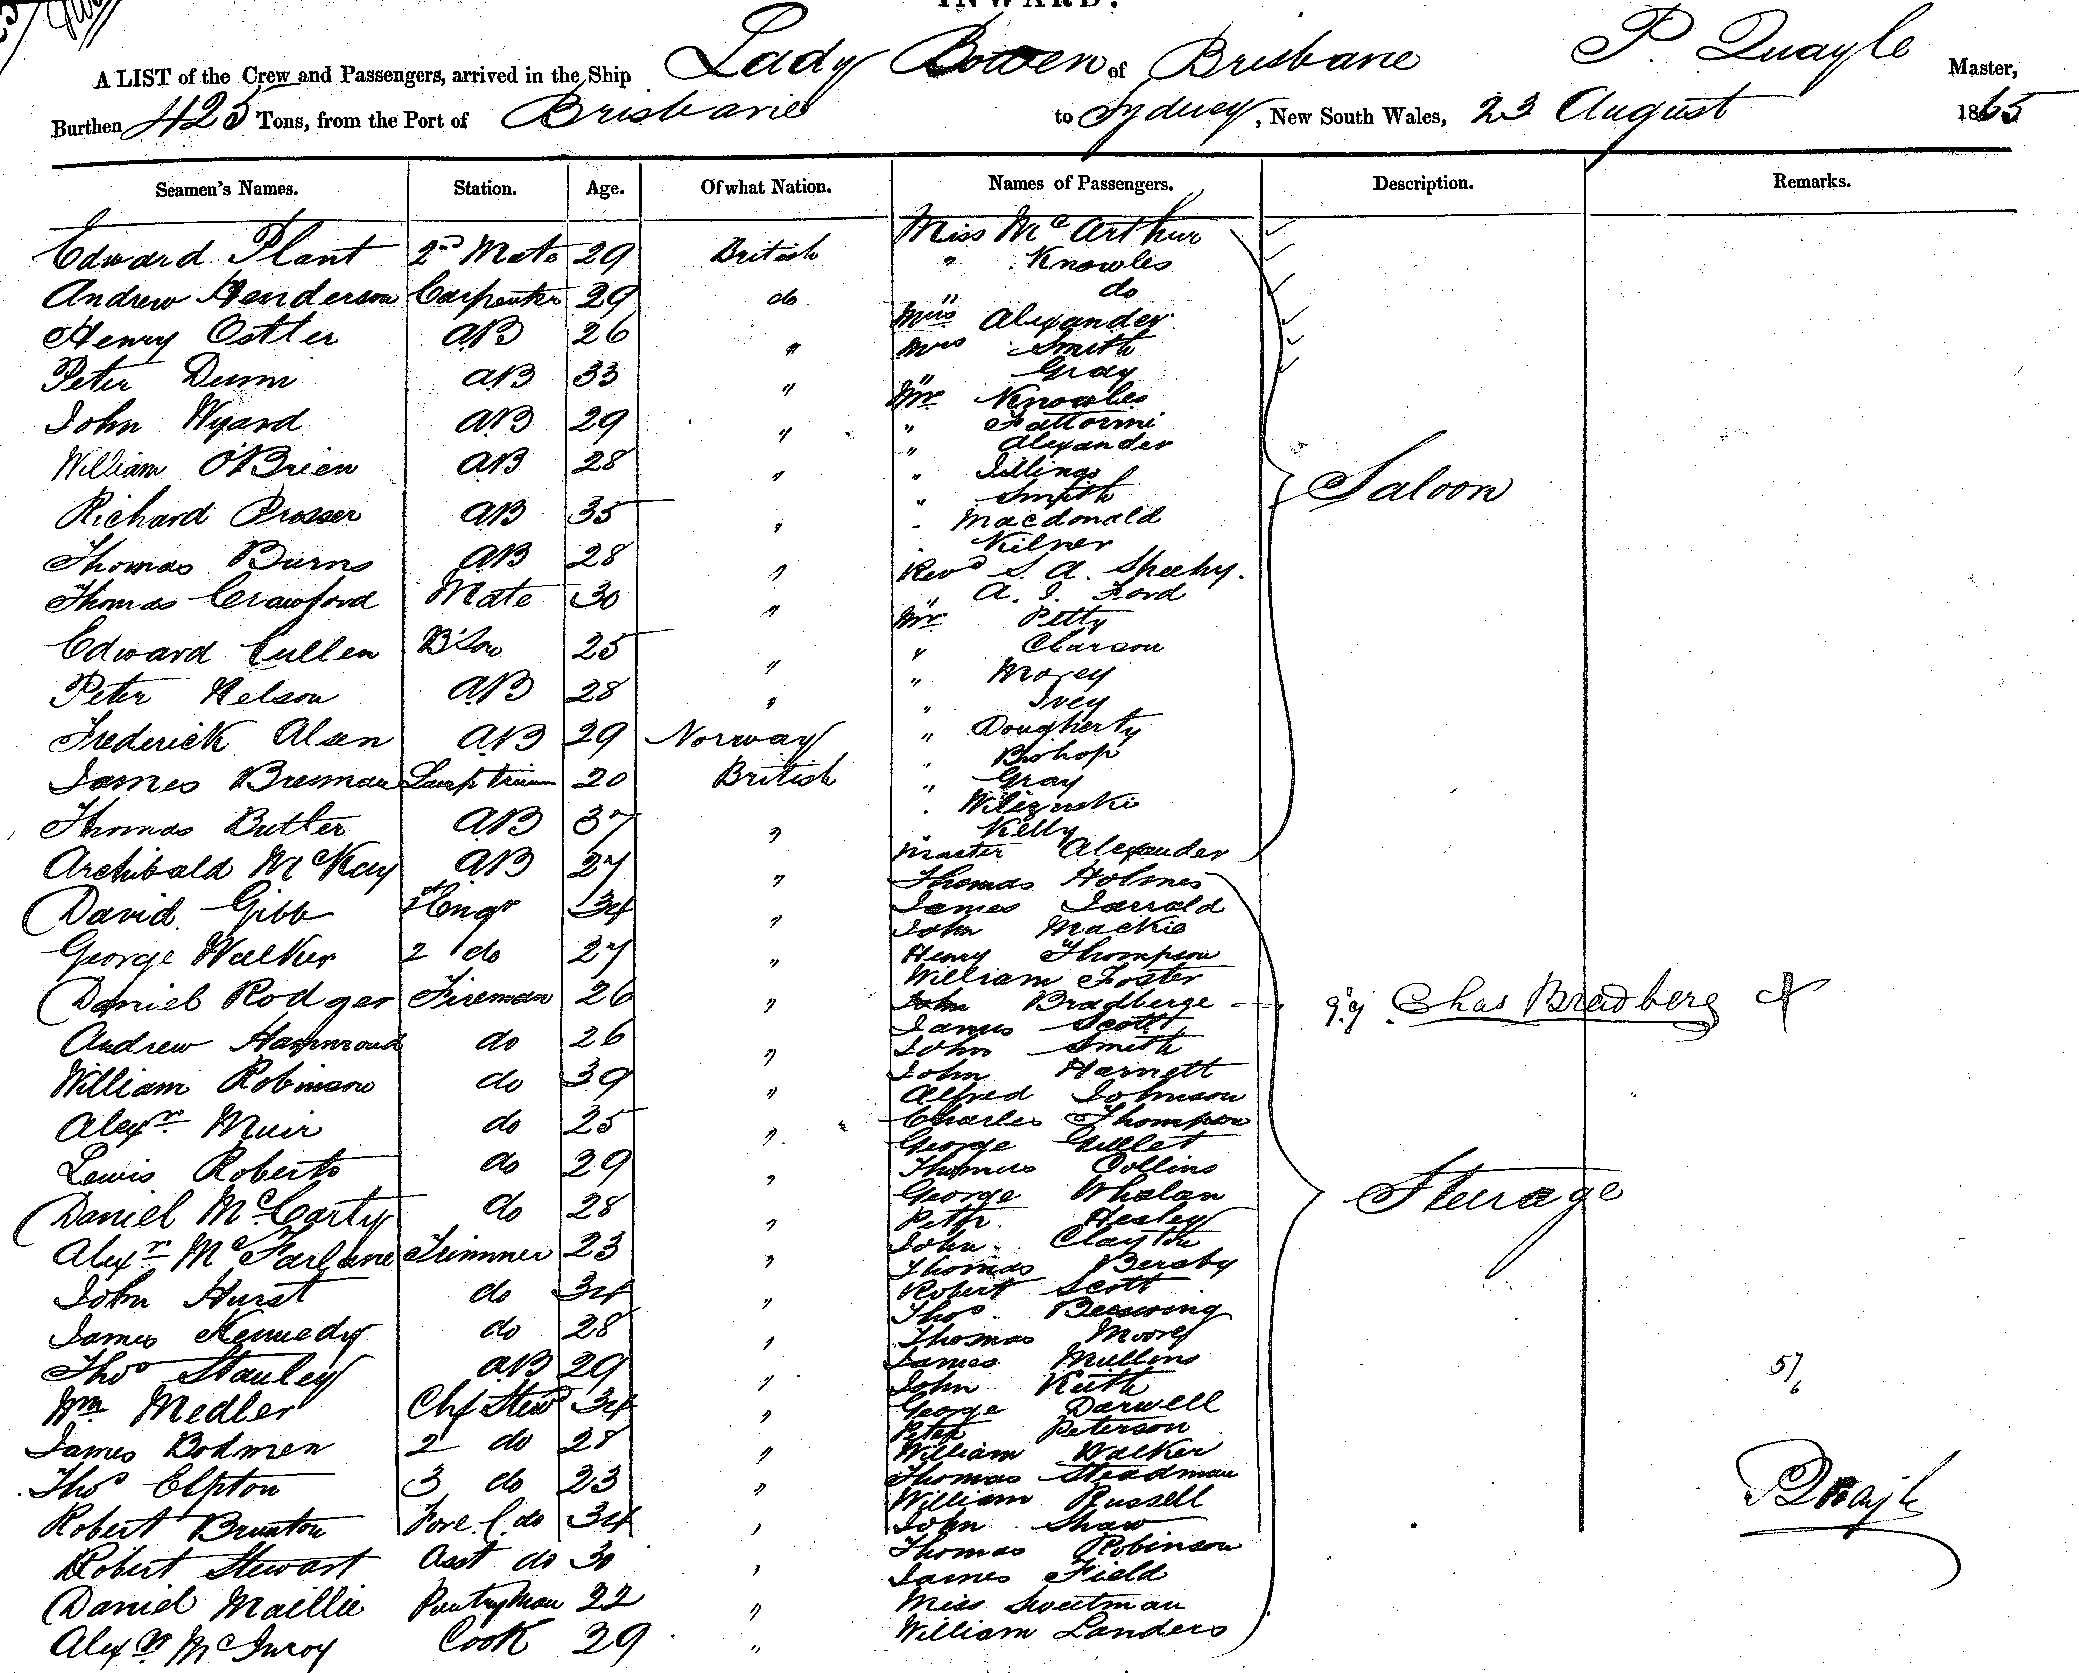 INWARD.
A LIST of the Crew and Passengers, arrived in the Ship Lady Bowen of Brisbane P. Quayle Master,
Burthen 425 Tons, from the Port of Brisbane to Sydney, New South Wales, 23 August 1865
Seamen's Names. Station. Age. Of what Nation. Names of Passengers. Description. Remarks.
Edward Plant 2nd Mate 29 British
Andrew Henderson Carpenter 29 do
Henry Ostler AB 26 "
Peter Dunn AB 33 "
John Wyard AB 29 "
William O'Brien AB 28 "
Richard Prosser AB 35 "
Thomas Burns AB 28 "
Thomas Crawford Mate 30 "
Edward Cullen 25 "
Peter Nelson AB 28 "
Frederick Alsen AB 29 Norway
James Brennan Lamp trimm 20 British
Thomas Butler AB 37 "
Archibald McKay AB 27 "
David Gibb Engr 34 "
George Walker 2 do 27 "
Daniel Rodger Fireman 26 "
Andrew Hammond do 26 "
William Robinson do 39 "
Alexr Muir do 25 "
Lewis Roberts do 29 "
Daniel McCarty do 28 "
Alexr McFarlane Trimmer 23 "
John Hurst do 34 "
James Kennedy do 28 "
Thos Stanley AB 29 "
Wm Medler Chf Stew 34 "
James Bodmen 2 do 28 "
Thos Elpton 3 do 23 "
Robert Brunton Fore C do 34 "
Robert Stewart Asst do 30 "
Daniel Maillie Pantryman 22 "
Alexr McInroy Cook 29 "
Miss McArthur
" Knowles
" do
Miss Alexander
Mrs Smith
" Gray
Mr Knowles
" Fattorini
" Alexander
" Illing
" Smith
" Macdonald
" Kilner
Revd S. A. Sheehy.
" A. I. Ford
Mr Petty
" Clarson
" Morey
" Ivey
" Dougherty
" Bishop
" Gray
" Wilezinski
" Kelly
Master Alexander
Saloon
Thomas Holmes
James Jarrald
John Mackie
Henry Thompson
William Foster
John Bradberge
Chas Bradberg
James Scott
John Smith
John Harnett
Alfred Johnson
Charles Thompson
George Gullet
Thomas Collins
George Whelan
Peter Healey
John Clayton
Thomas Bersby
Robert Scott
Thos Beeswing
Thomas Moore
James Mullins
John Keith
George Darwell
Peter Peterson
William Walker
Thomas Steadman
William Russell
John Shaw
Thomas Robinson
James Field
Miss Sweetman
William Landers
Steerage
57/6
P Quayle